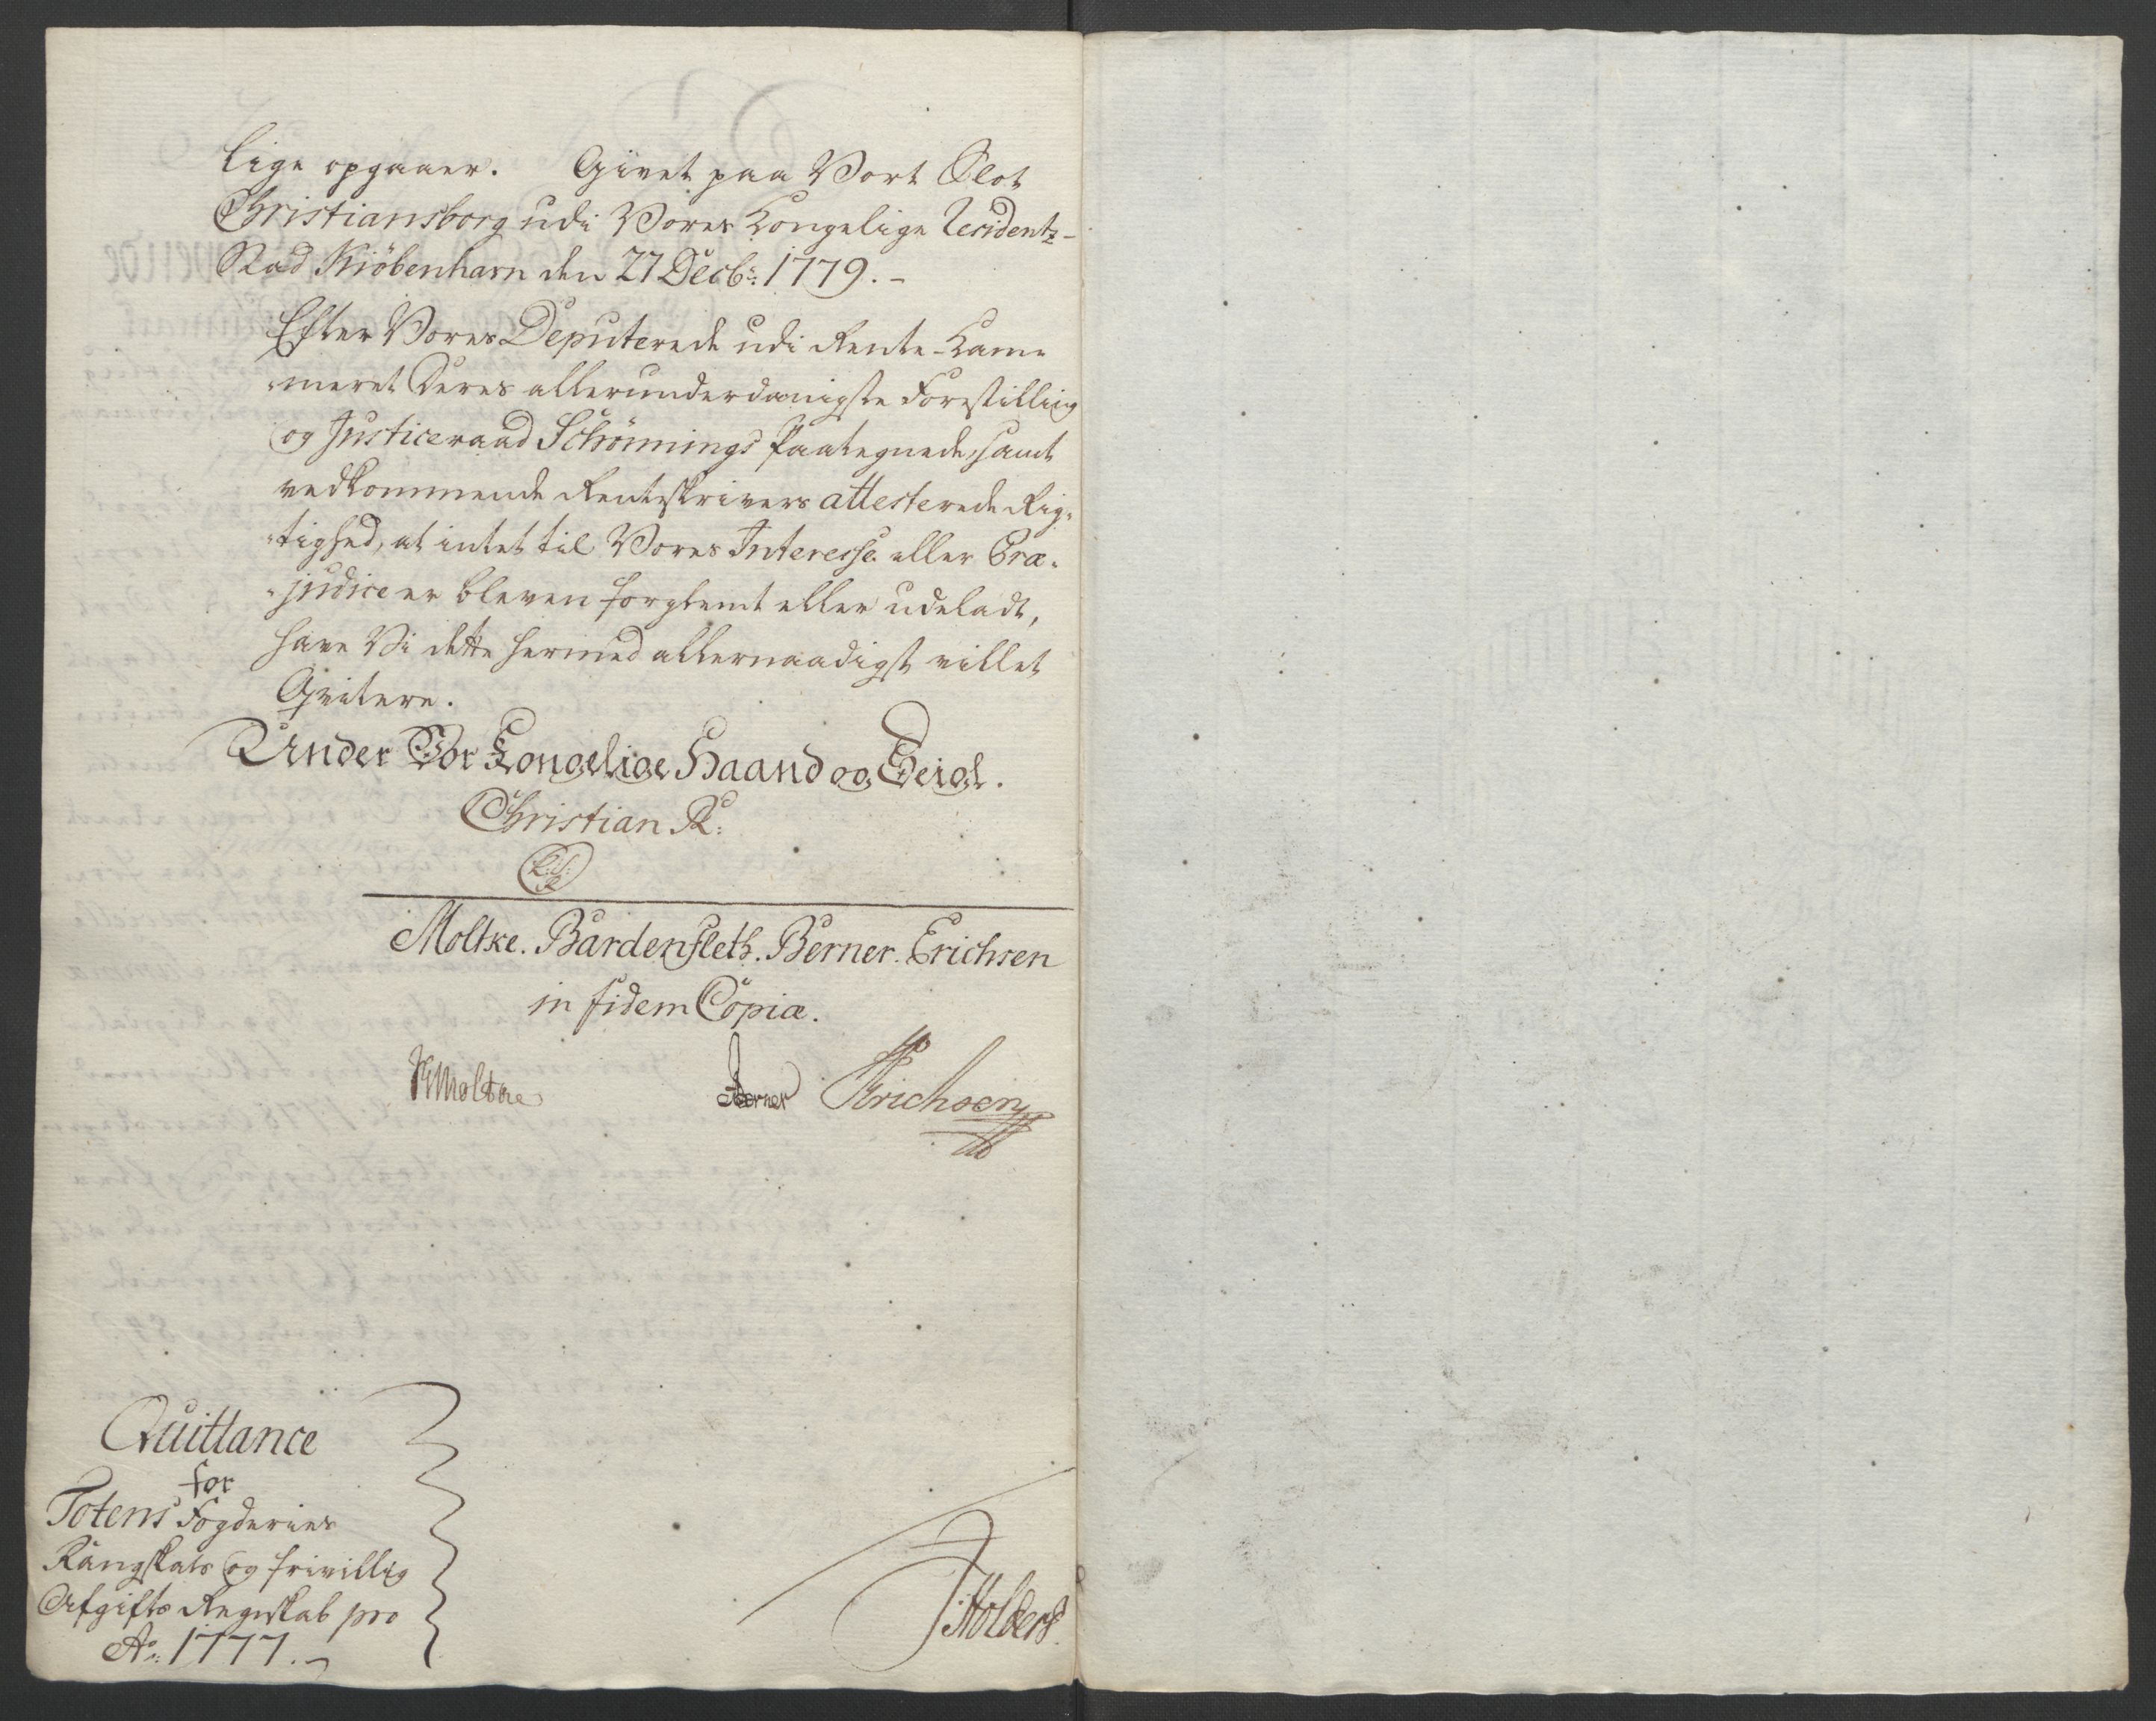 lige opgaaer. Givet paa Vort Slot
Christiansborg udi Vores Kongelige Residentz-
Stad Kiöbenharn den 27 Decbr: 1779.-
Efter Vores Deputerede udi Rente-Kam-
-meret Deres allerunderdanigste Forestilling
og Justiceraad Schönnings Paategnede, samt
vedkommende Renteskrivers attesterede Rig-
-tighed, at intet til Vores Interesse eller Præ-
-judice er bleven forglemt eller udeladt,
have Vi dette hermed allernaadigst villet
Qvitere.
Under Vor Kongelige Haand og Seigl.
Christian R:
L:S:
R
Moltke. Bardenfleth. Berner. Erichsen
in fidem Copiæ.
Moltke Berner Erichsen
Quittance
for
Totens Fogderies
Rangskats og frivillig
Afgifts Regnskab pro
Ao: 1777.-
Holbers